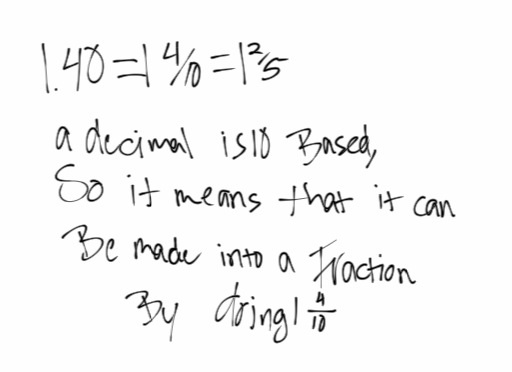 1.40 = 1 4/10 = 1 2/5
a decimal is 10 Based,
So it means that it can
Be made into a fraction
By doing 1 4/10